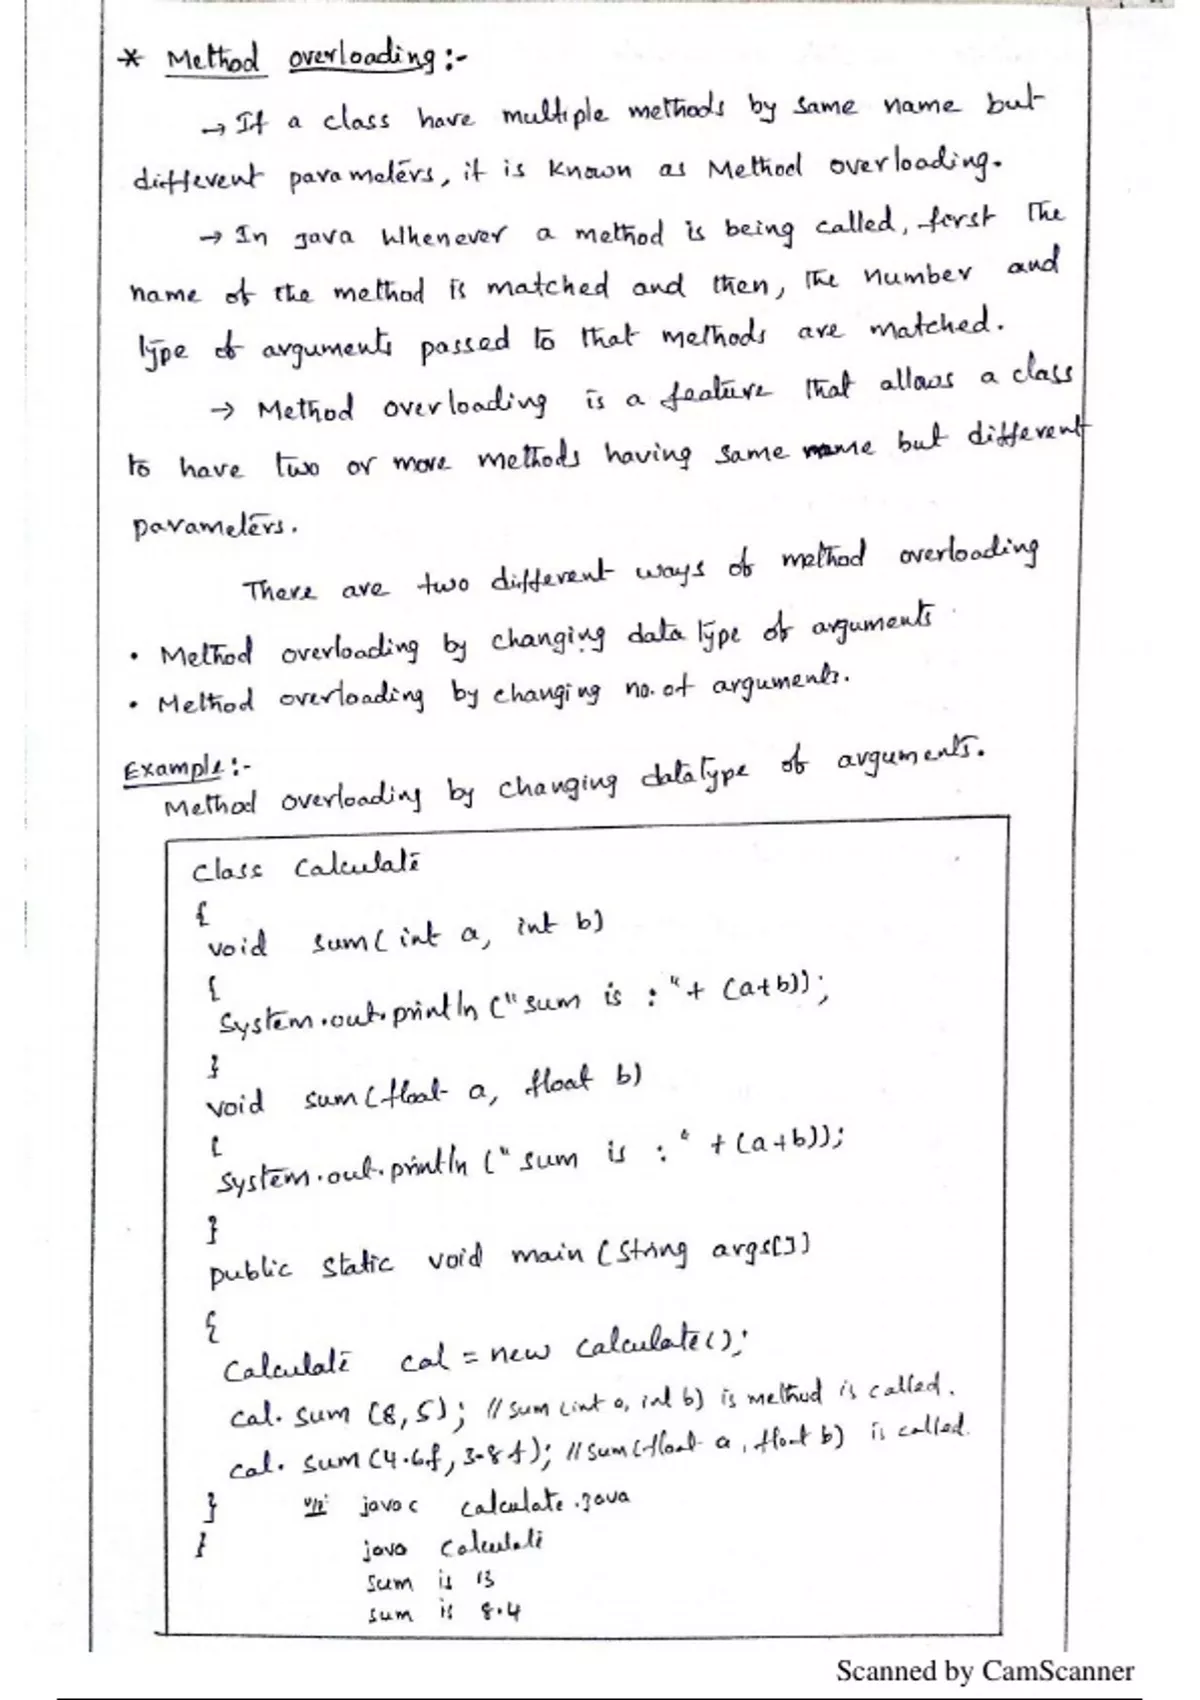 * Method overloading :-
→ If a class have multiple methods by same name but
different parameters, it is known as Method overloading.
→ In java Whenever a method is being called, first the
name of the method is matched and then, the number and
type of arguments passed to that methods are matched.
→ Method overloading is a feature that allows a class
to have two or more methods having same name but different
parameters.
There are two different ways of method overloading
• Method overloading by changing data type of arguments
• Method overloading by changing no. of arguments.
Example :-
Method overloading by changing datatype of arguments.
class Calculate
{
void sum( int a, int b)
{
System.out.println ("sum is : "+ (a+b));
}
void sum (float a, float b)
{
System.out.println ("sum is : " + (a+b));
}
public static void main (String args[])
{
Calculate cal = new calculate();
cal. sum (8,5); // sum (int a, int b) is method is called.
cal. sum (4.6f, 3.8f); // sum (float a, float b) is called.
} o/p: javac calculate.java
} java Calculate
sum is 13
sum is 8.4
Scanned by CamScanner